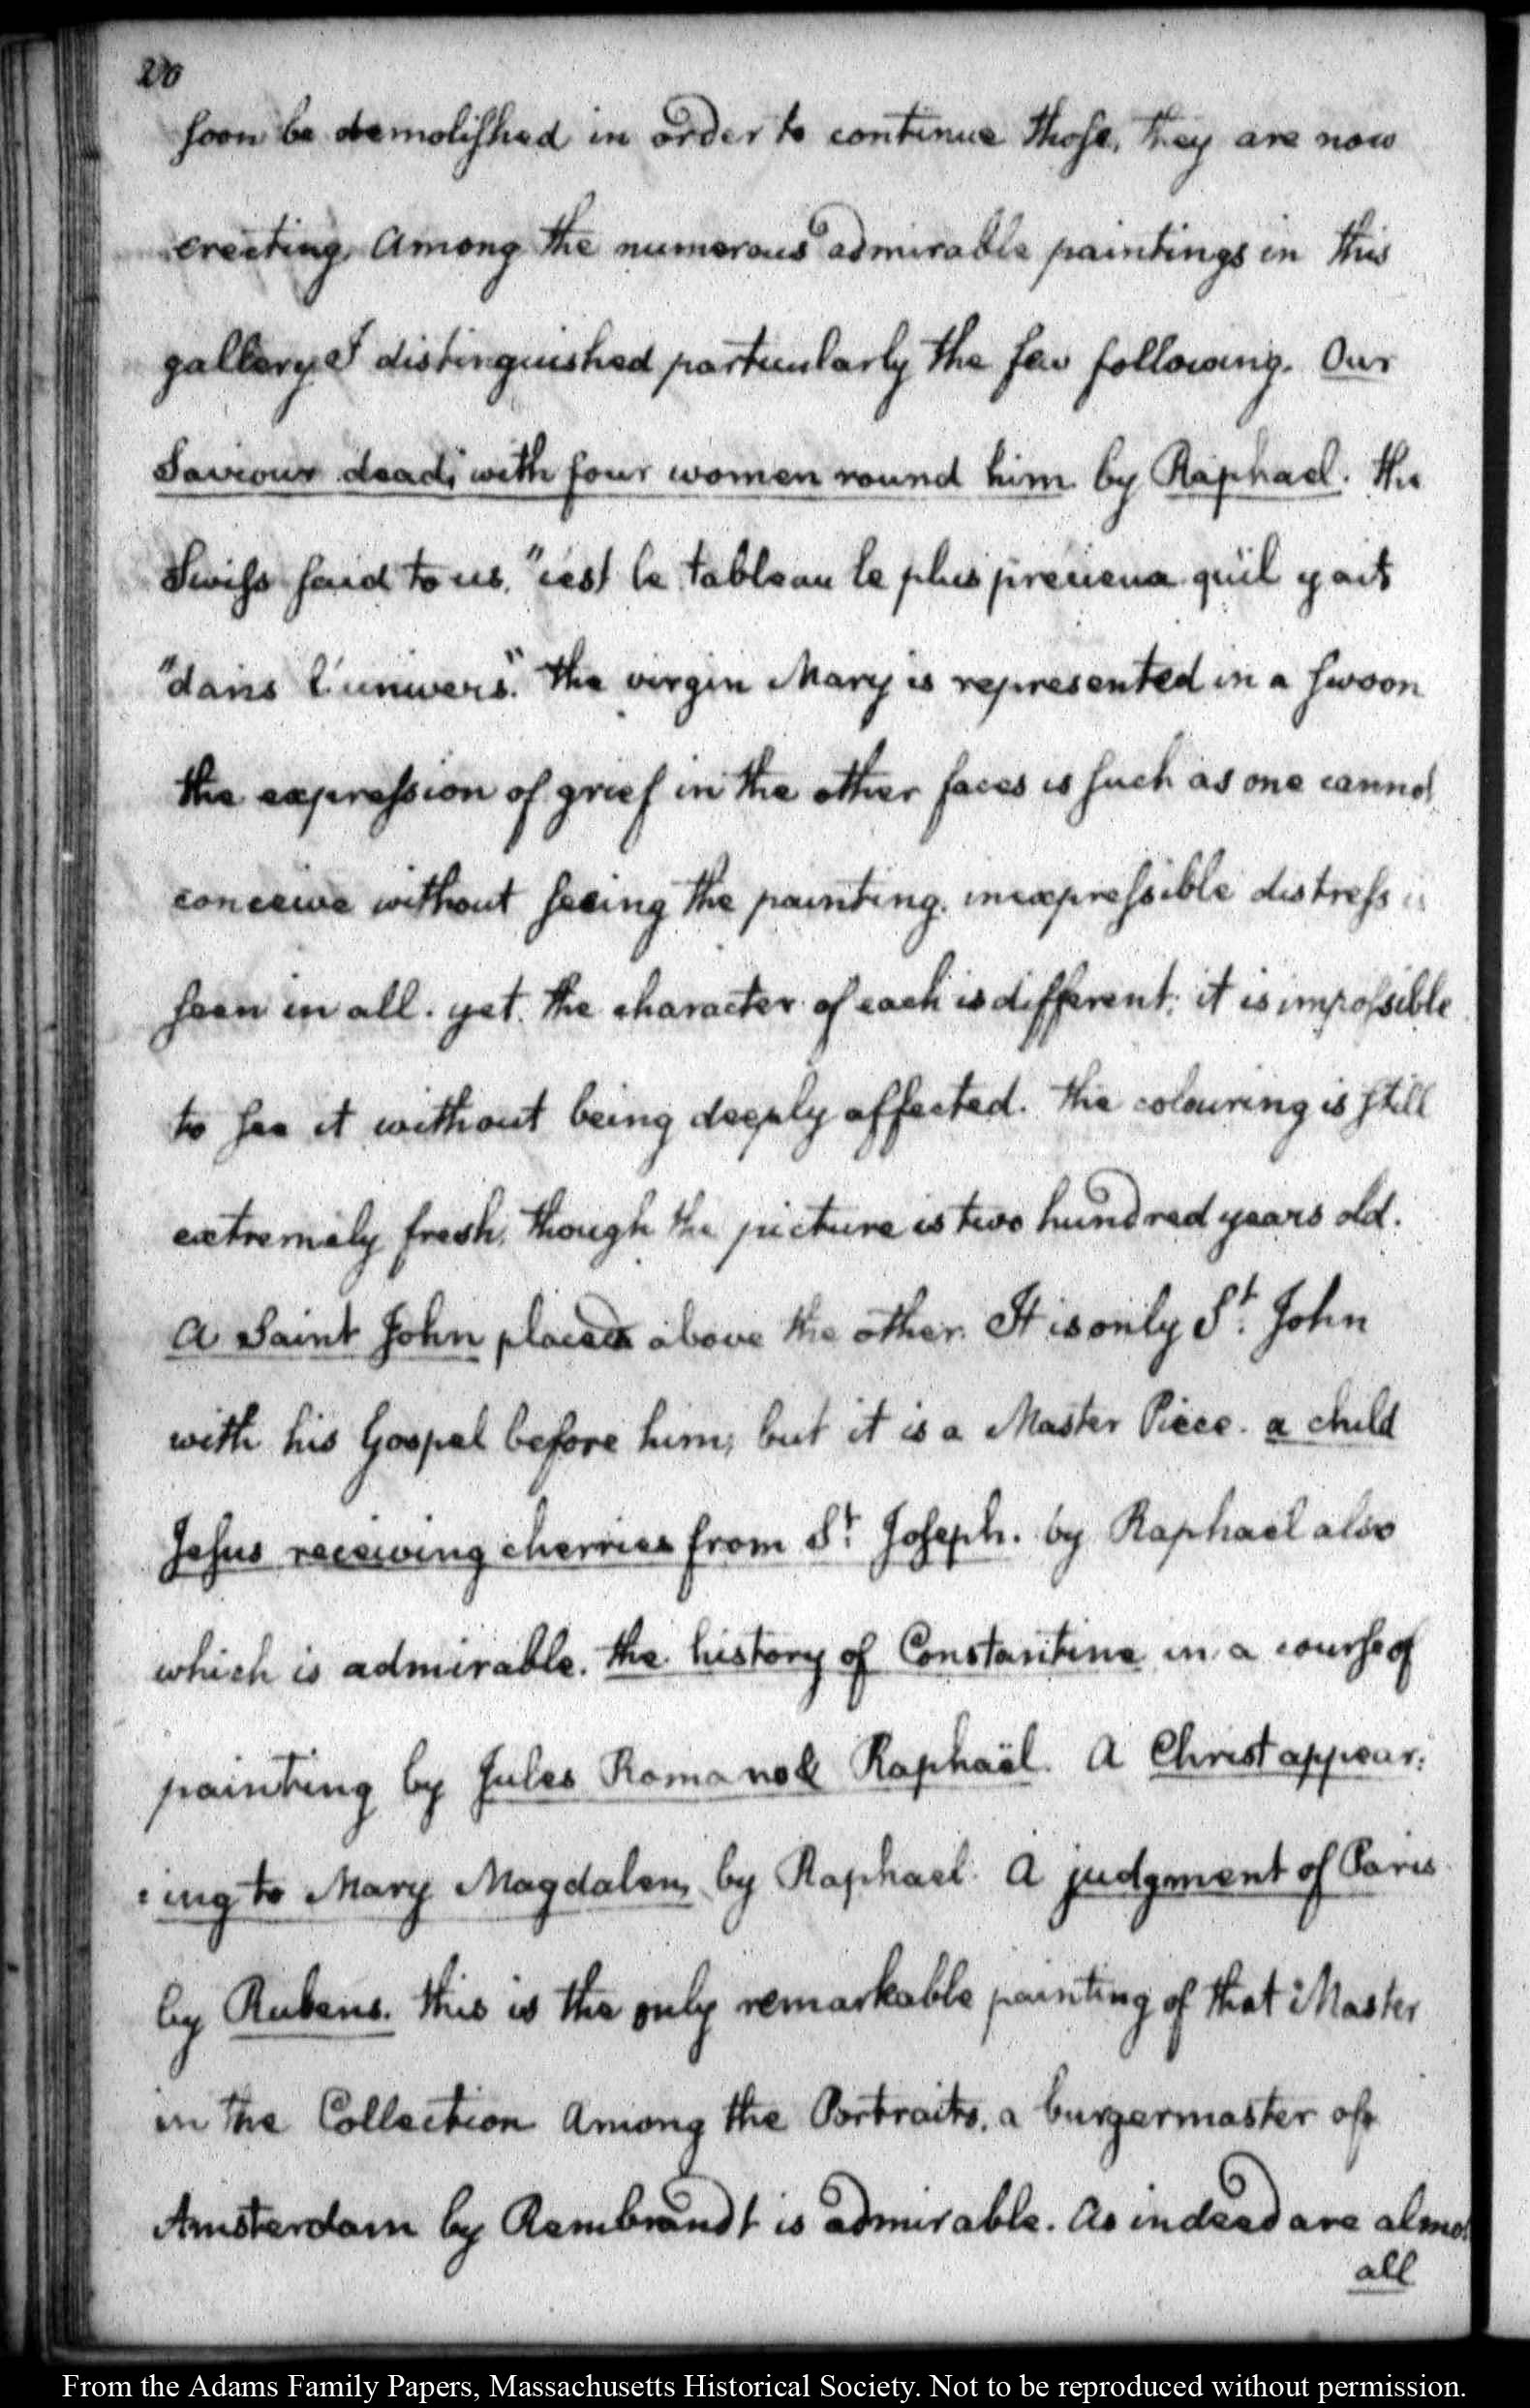 20
soon be demolished in order to continue those, they are now
erecting, Among the numerous admirable paintings in this
gallery I distinguished particularly the few following. Our
Saviour dead, with four women round him by Raphael. the
Swiss said to us, "c'est le tableau le plus precieux qu'il y ait
"dans l'univers." the virgin Mary is represented in a swoon
the expression of grief in the other faces is such as one cannot
conceive without seeing the painting. inexpressible distress is
seen in all. yet. the character of each is different: it is impossible
to see it without being deeply affected. the colouring is still
extremely fresh, though the picture is two hundred years old.
A Saint John placed above the other. It is only St. John
with his Gospel before him; but it is a Master Piece. a child
Jesus receiving cherries from St. Joseph. by Raphael also
which is admirable. the history of Constantine in a course of
painting by Jules Romano & Raphaël. A Christ appear:
:ing to Mary Magdalen, by Raphael. A judgment of Paris
by Rubens. this is the only remarkable painting of that Master
in the Collection Among the Portraits, a burgermaster of
Amsterdam by Rembrandt is admirable. As indeed are almost
all
From the Adams Family Papers, Massachusetts Historical Society. Not to be reproduced without permission.